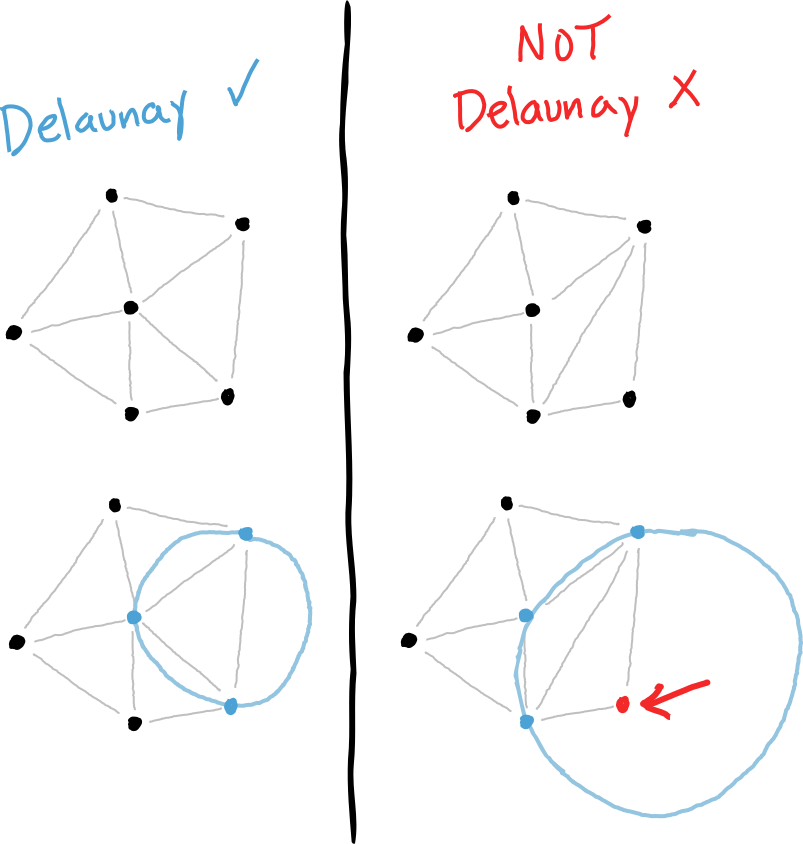 Delaunay ✓
NOT
Delaunay X